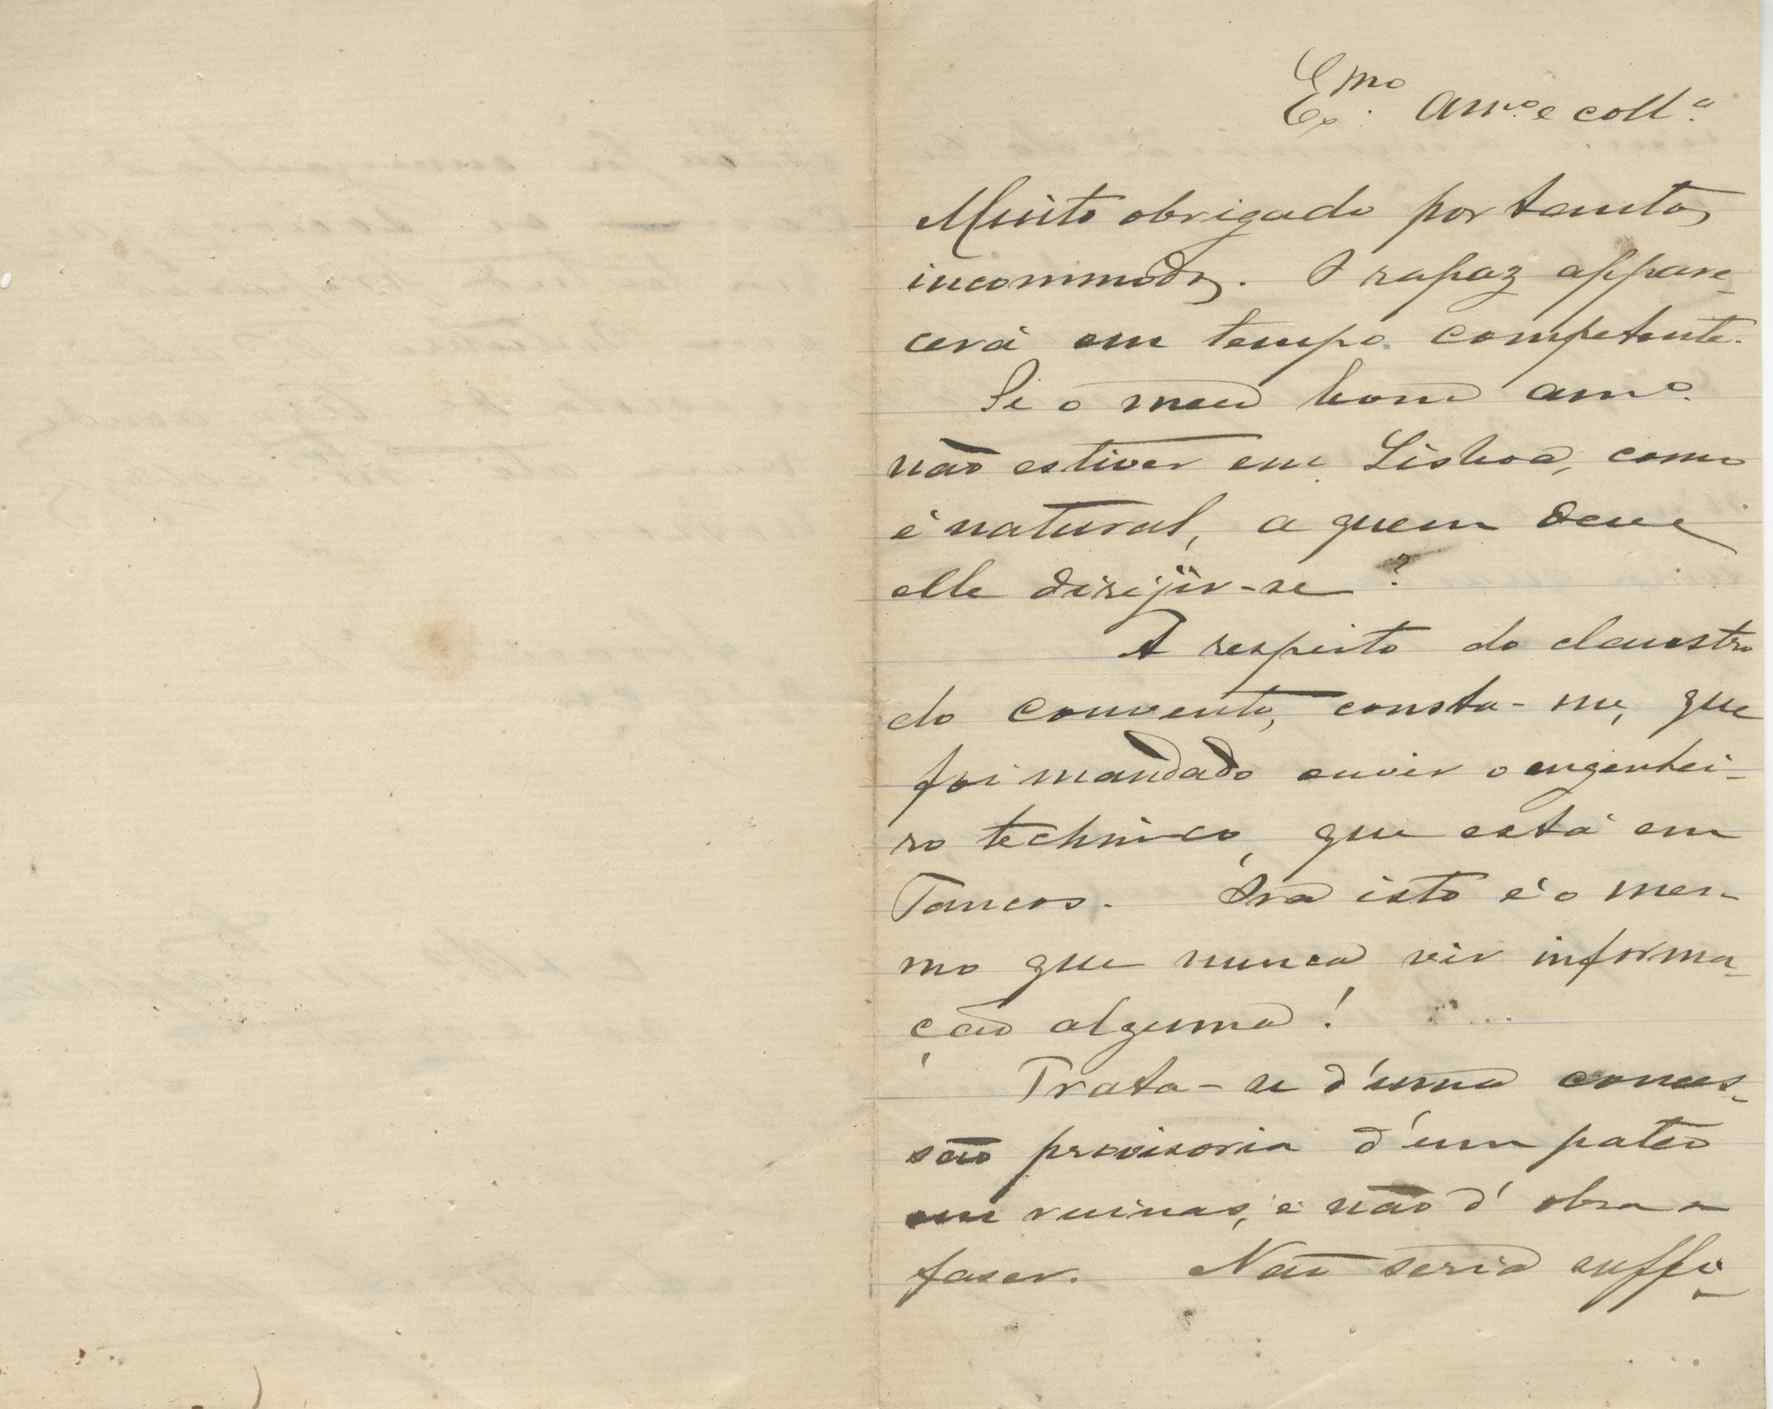 Exmo. Amo. e colla.
Muito obrigado por tantos
incommodos. O rapaz appare-
cerá em tempo competente.
Si o meu bom amo.
não estiver em Lisboa, como
é natural, a quem deve
elle dirijir-se?
A respeito do claustro
do convento, consta-me, que
foi mandado ouvir o engenhei-
ro technico, que está em
Tancos. Ora isto é o mes-
mo que nunca vir informa-
ção alguma!
Trata-se d'uma conces-
são provisoria d'um pateo
em ruinas, e não d'obra a
faser. Não seria suffi-